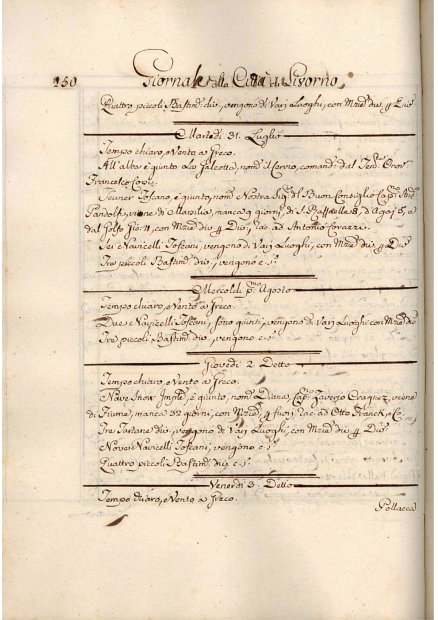 250 Giornale della Città di Livorno
Quattro piccoli Bastim.ti div. vengono di Varj Luoghi, con Merc. div. p. Div.
Martedì 31. Luglio
Tempo chiaro, e Vento a Greco.
All'alba è giunto La Falcotta, nom. il Corvo, comand. dal Ten. Onor.
Francesco
Toscano, è giunto, nom. Nostra Sig. del Buon Consiglio Cap.
Pandolfi, viene di Marsilia, manca 9 giorni, da S. Raffaelle 8, d'Agaj 5, e
dal Golfo con Merc. div. p. Div., rac. ad Antonio Corazzi.
Sei Navicelli Toscani, vengono di Varj Luoghi, con Merc. div. p. Div.
Tre piccoli Bastim. div. vengono c. s.
Mercoledì p.mo Agosto
Tempo chiaro, e Vento a Greco.
Due Navicelli Toscani, sono giunti, vengono di Varj Luoghi con Merc. div.
Tre piccoli Bastim. div. vengono c. s.
Giovedì 2 Detto
Tempo chiaro, e Vento a Greco.
Nave Snow Ingle. è giunto, nom. Diana, Cap. Zaverio Craquez, viene
di Fiume, manca 32 giorni, con Merc. p. fuori, rac. a Otto Franck, e Co.
Tre Tartane div. vengono di Varj Luoghi, con Merc. div. p. Div.
Nove Navicelli Toscani, vengono c. s.
Quattro piccoli Bastim. div. c. s.
Venerdì 3 Detto
Tempo chiaro, e Vento a Greco.
Pollacca